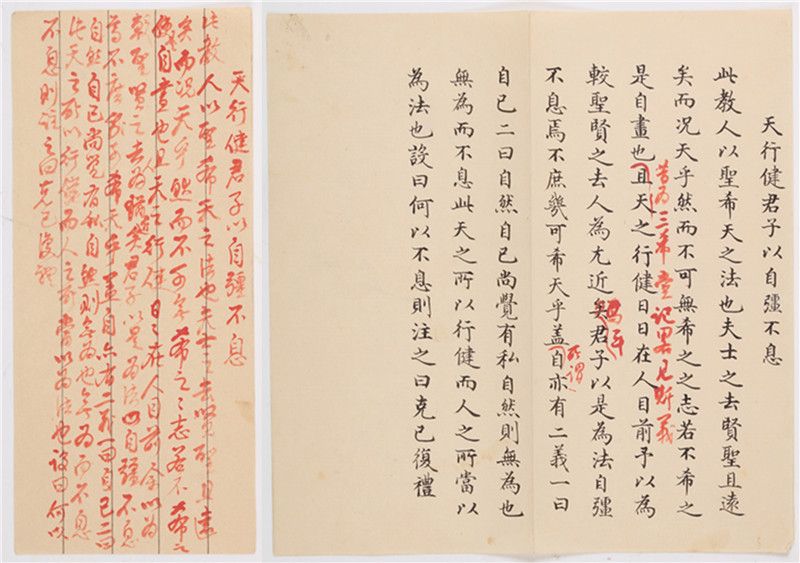 天行健君子以自彊不息
此教人以聖希天之法也夫士之去賢聖且遠
矣而況天乎然而不可無希之之志若不希之
是自畫也且天之行健日日在人目前予以為
昔為三希堂記畧見斯義
較聖賢之去人為尤近矣君子以是為法自彊
不息焉不庶幾可希天乎盖自亦有二義一曰
所謂
自已二曰自然自已尚覺有私自然則無為也
無為而不息此天之所以行健而人之所當以
為法也設曰何以不息則注之曰克已復禮
天行健君子以自彊不息
此教人以聖希天之法也夫士之去賢聖且遠
矣而況天乎然而不可無希之之志若不希之
是自畫也且天之行健日日在人目前予以為
較聖賢之去人為尤近矣君子以是為法自彊不息
焉不庶幾可希天乎盖自亦有二義一曰自已二曰
自然自已尚覺有私自然則無為也無為而不息
此天之所以行健而人之所當以為法也設曰何以
不息則注之曰克已復禮